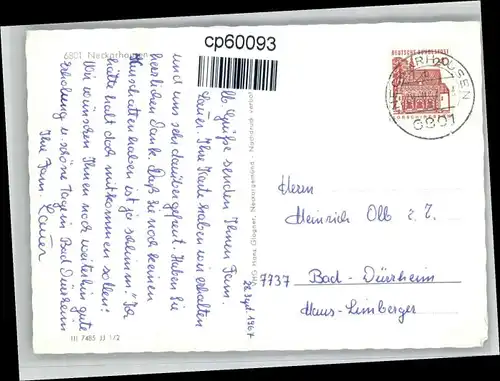 6801 Neckarhausen
cp60093
DEUTSCHE BUNDESPOST
20
NECKARHAUSEN
6801
26. Sept. 1967
Lb. Grüße senden Ihnen Fam.
Lauer. Ihre Karte haben wir erhalten
und uns sehr darüber gefreut. Haben Sie
herzlichen Dank. Daß Sie noch keinen
haben ist ja schlimm. "Da
hätte halt doch mitkommen sollen!
Wir wünschen Ihnen noch weiterhin gute
Erholung u. schöne Tage in Bad Dürrheim
Ihre Fam. Lauer
Herrn
Heinrich Olb z. Z.
7737 Bad-Dürrheim
Haus-Limberger
III 7485 JJ 1/2